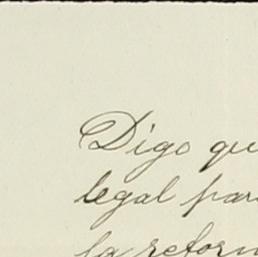 Digo qu
legal par
la reform